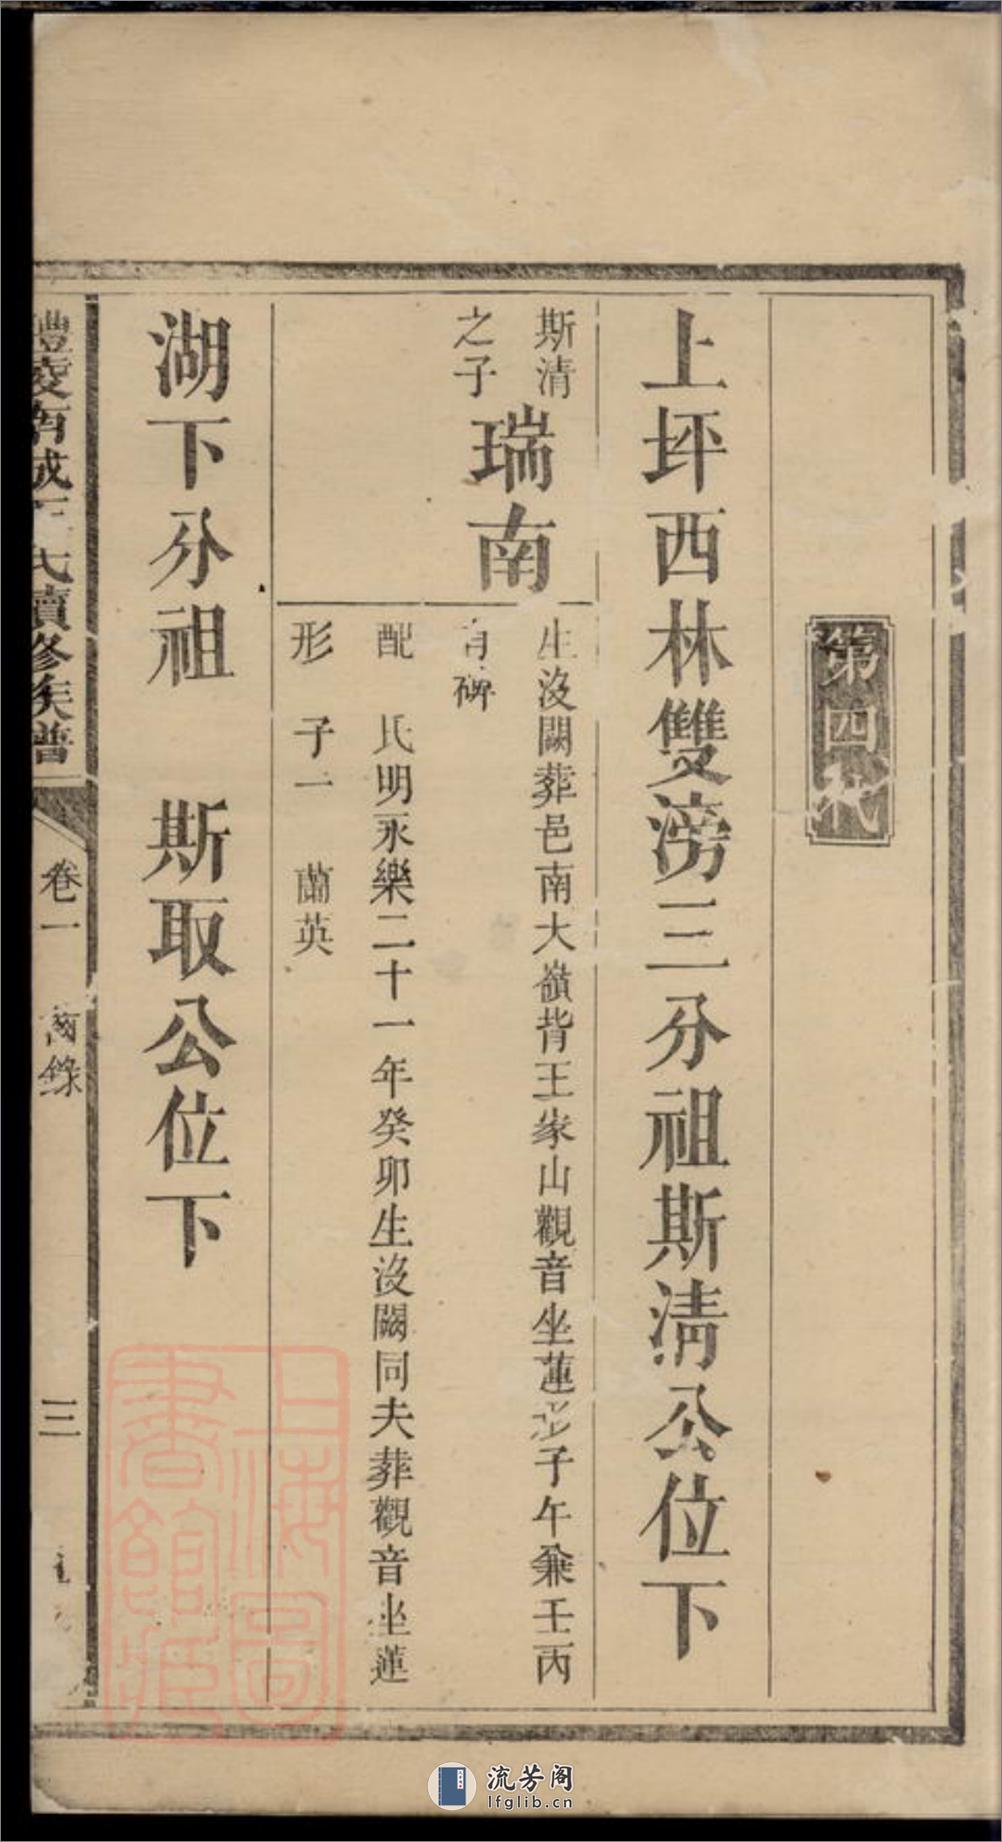 第四代
上坪西林雙滂三分祖斯淸公位下
斯清之子
瑞南
生沒闕葬邑南大嶺背王家山觀音坐蓮形子午兼壬丙
有碑
配　氏明永樂二十一年癸卯生沒闕同夫葬觀音坐蓮
形　子一　蘭英
湖下分祖　斯取公位下
醴陵南城王氏續修族譜
卷一
齒錄
三
上海圖書館藏
流芳阁
lfglib.cn